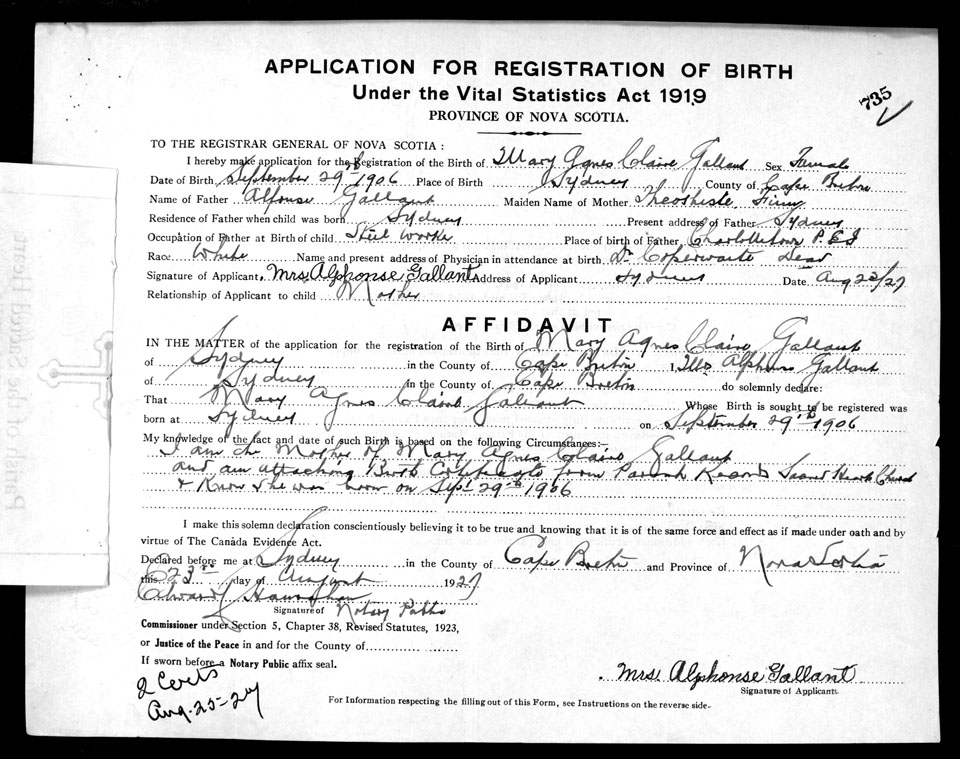 APPLICATION FOR REGISTRATION OF BIRTH
Under the Vital Statistics Act 1919
PROVINCE OF NOVA SCOTIA.
735
TO THE REGISTRAR GENERAL OF NOVA SCOTIA :
I hereby make application for the Registration of the Birth of Mary Agnes Claire Gallant Sex Female
Date of Birth September 29th 1906 Place of Birth Sydney County of Cape Breton
Name of Father Alfonse Gallant Maiden Name of Mother Theothiste
Residence of Father when child was born Sydney Present address of Father Sydney
Occupation of Father at Birth of child Steel Place of birth of Father Charlottetown P.E.I
Race White Name and present address of Physician in attendance at birth Dr Dead
Signature of Applicant Mrs. Alphonse Gallant Address of Applicant Sydney Date Aug 23/27
Relationship of Applicant to child Mother
AFFIDAVIT
IN THE MATTER of the application for the registration of the Birth of Mary Agnes Claire Gallant
of Sydney in the County of Cape Breton I, Mrs Alphons Gallant
of Sydney in the County of Cape Breton do solemnly declare:
That Mary Agnes Claire Gallant Whose Birth is sought to be registered was
born at Sydney on September 29th 1906
My knowledge of the fact and date of such Birth is based on the following Circumstances:—
I am the Mother of Mary Agnes Claire Gallant
and am attaching Birth Certificate from Parish Records Sacred Heart Church
& Know she was born on Sept 29th 1906
I make this solemn declaration conscientiously believing it to be true and knowing that it is of the same force and effect as if made under oath and by
virtue of The Canada Evidence Act.
Declared before me at Sydney in the County of Cape Breton and Province of Nova Scotia
this 23rd day of August 1927
Edward
Signature of Notary Public
Commissioner under Section 5, Chapter 38, Revised Statutes, 1923,
or Justice of the Peace in and for the County of
If sworn before a Notary Public affix seal.
2 Certs
Aug-25-27
Mrs. Alphonse Gallant
Signature of Applicant.
For Information respecting the filling out of this Form, see Instructions on the reverse side.
Parish of the Sacred Heart